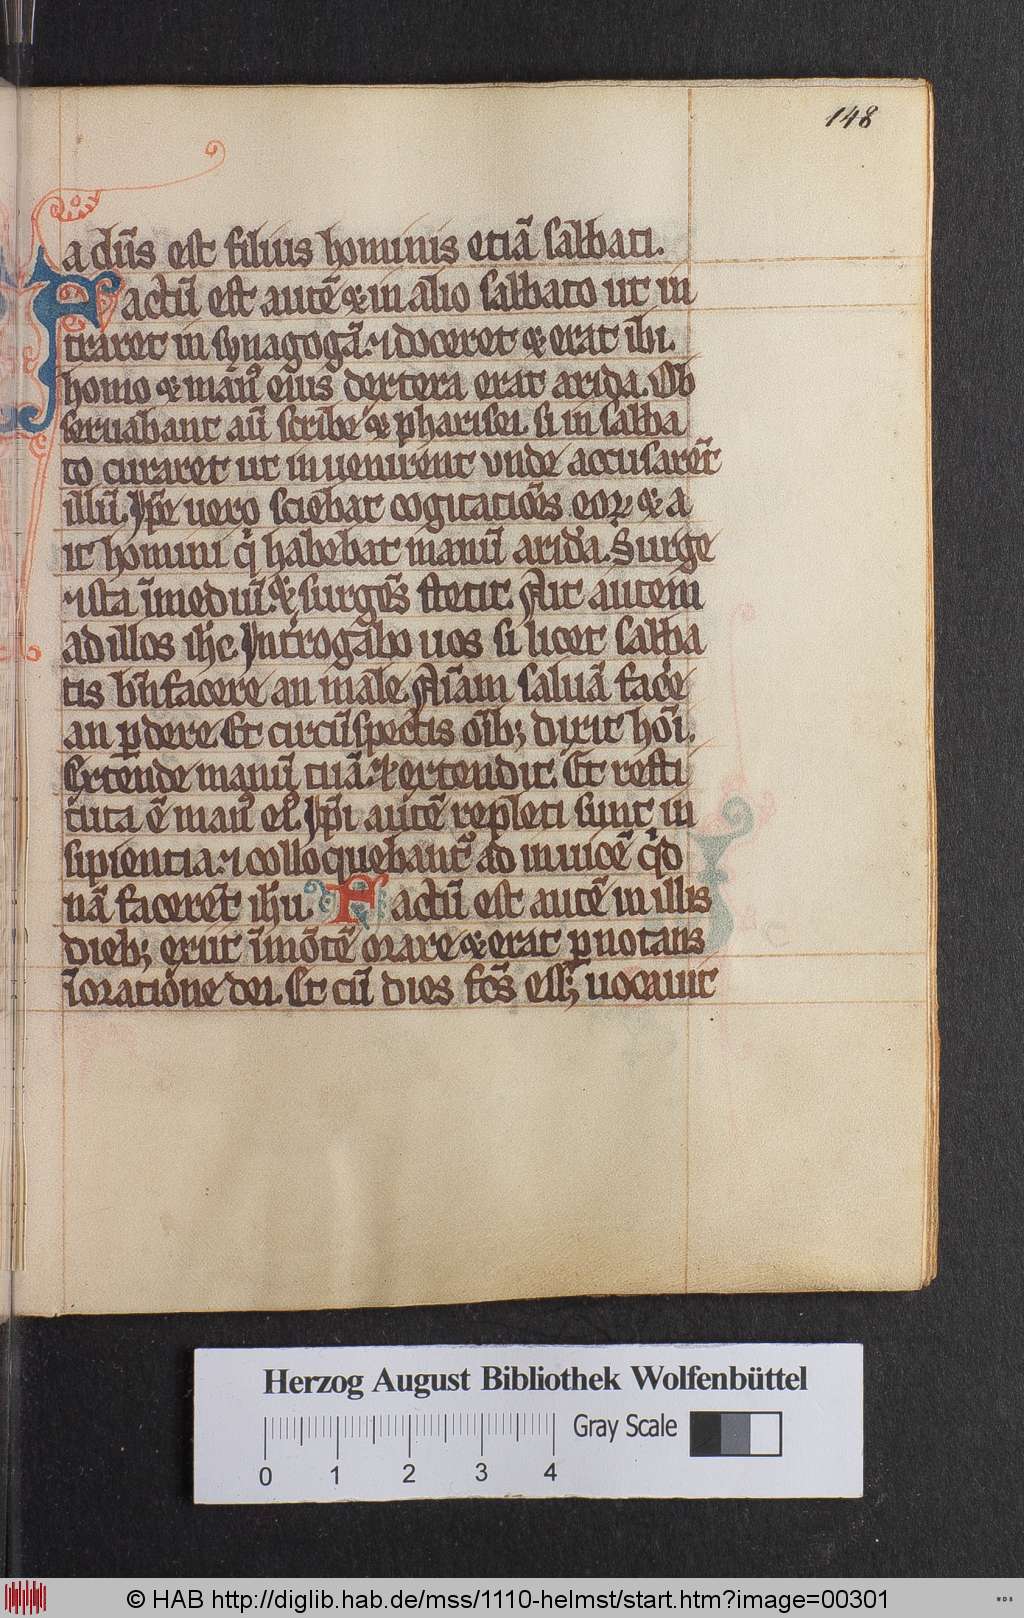 148
a dn̄s est filius hominis etiā sabbati.
Factū est autē & in alio sabbato ut in
traret in synagogā. ⁊ doceret & erat ibi.
homo & manꝰ eius dextera erat arida. Ob
seruabant aū scribe & pharisei. si in sabba
to curaret ut inuenirent vnde accusarēt
illū. Ip̄e uero sciebat cogitatiōes eoꝝ & a
it homini q̄ habebat manū arida. Surge
⁊ sta ī mediū. & surgēs stetit. Ait autem
ad illos ih̄c. Int̄rogabo uos si licet sabba
tis bn̄facere an male. Aīam saluā facē
an ꝑdere. Et circūspectis oīb; dixit hōi.
Extende manū tuā. & extendit. Et resti
tuta ē manꝰ eiꝰ. Ip̄i autē repleti sunt in
sipientia. ⁊ colloquebantꝰ ad inuicē qd
nā facerēt ih̄u. Factū est autē in illis
dieb; exiit ī mōtē orare & erat ꝑnotans
ī oratione dei. Et cū dies fc̄s ess; uocauit
Herzog August Bibliothek Wolfenbüttel
Gray Scale
0 1 2 3 4
© HAB http://diglib.hab.de/mss/1110-helmst/start.htm?image=00301